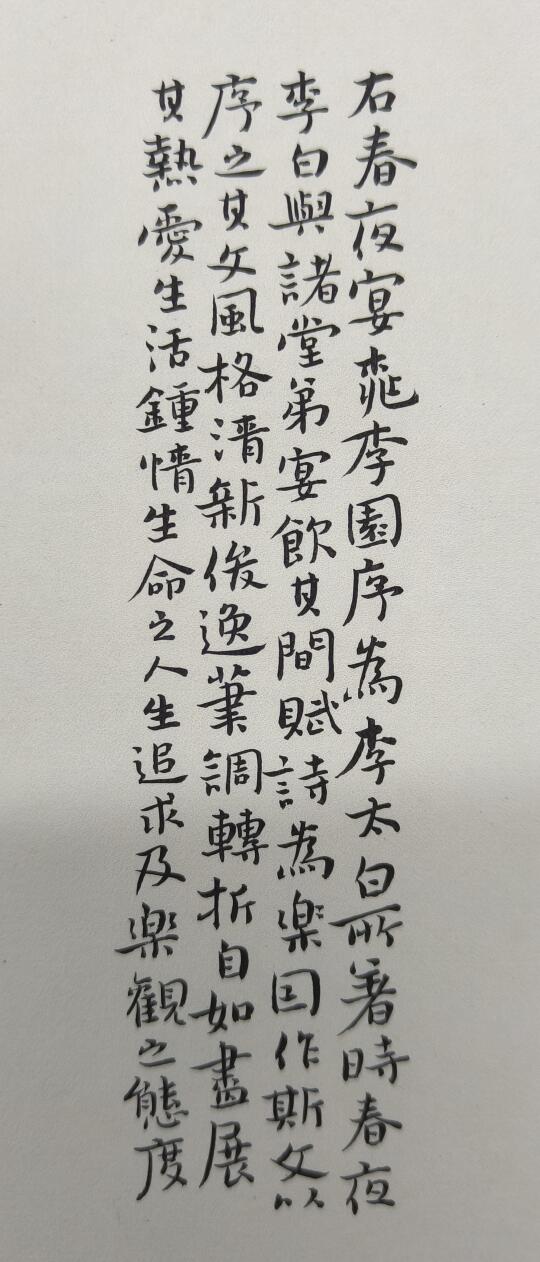 右春夜宴桃李園序為李太白所著時春夜
李白與諸堂弟宴飲其間賦詩為樂因作斯文以
序之其文風格清新俊逸筆調轉折自如盡展
其熱愛生活鍾情生命之人生追求及樂觀之態度